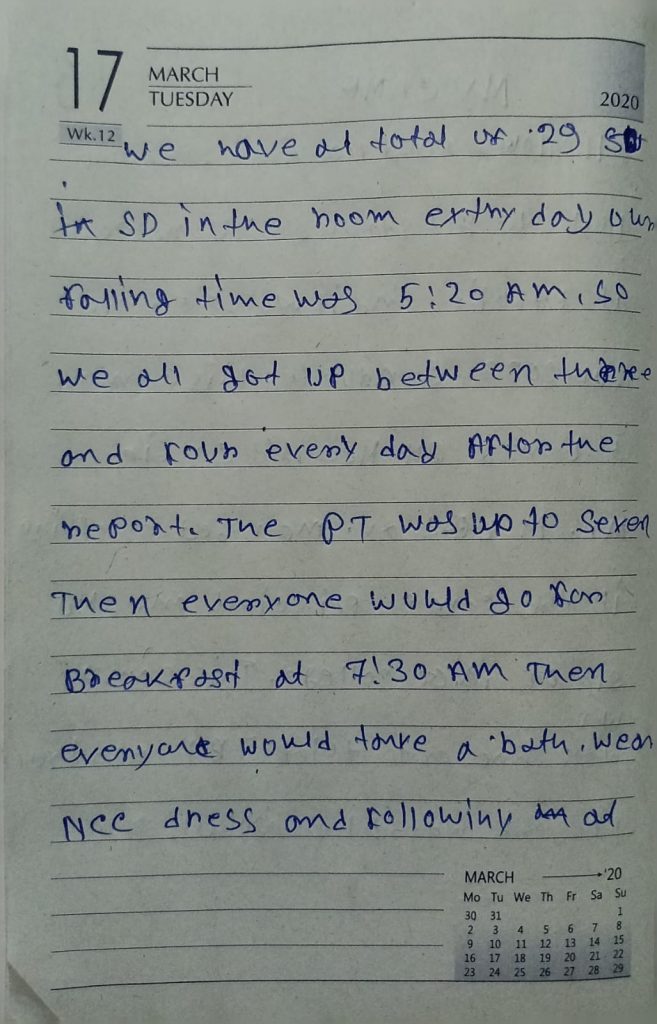 17
MARCH
TUESDAY
2020
Wk.12
we have at total of 29 SD
in SD in the room extry day our
falling time was 5:20 AM, so
we all got up between three
and four every day After the
report. The PT was up to Seven
Then everyone would go for
Breakfast at 7:30 AM Then
everyone would take a bath, wear
NCC dress and following at
MARCH '20
Mo Tu We Th Fr Sa Su
30 31 1
2 3 4 5 6 7 8
9 10 11 12 13 14 15
16 17 18 19 20 21 22
23 24 25 26 27 28 29